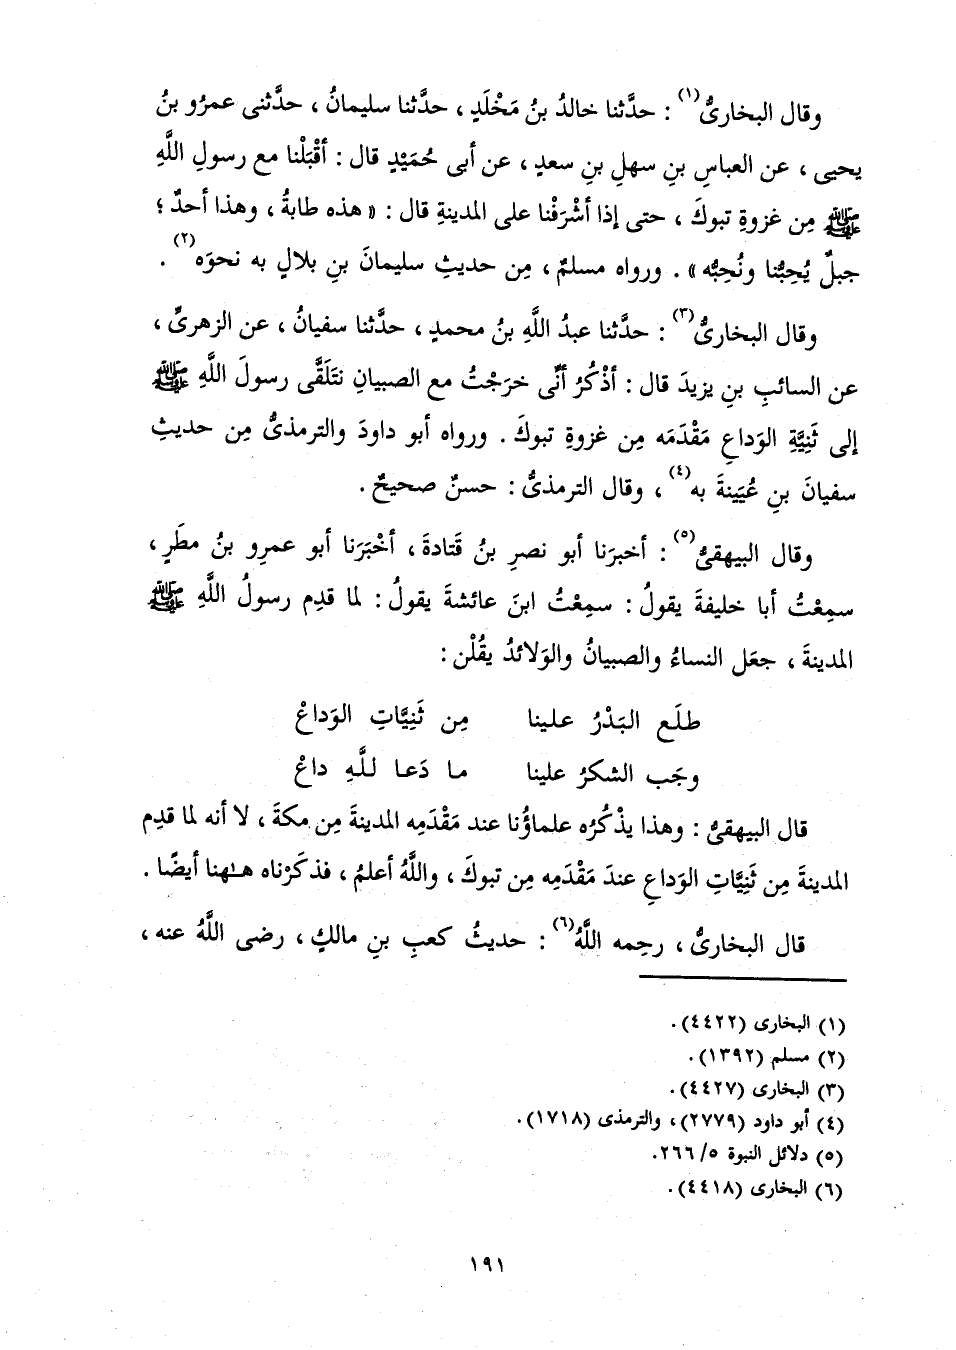 وقال البخارىُّ(١) : حدَّثنا خالدُ بنُ مَخْلَدٍ ، حدَّثنا سليمانُ ، حدَّثنى عمرُو بنُ
يحيى ، عن العباسِ بنِ سهلِ بنِ سعدٍ ، عن أبى حُمَيْدٍ قال : أقْبَلْنا مع رسولِ اللَّهِ
ﷺ مِن غزوةِ تبوكَ ، حتى إذا أشْرَفْنا على المدينةِ قال : « هذه طابةُ ، وهذا أحدٌ ؛
جبلٌ يُحِبُّنا ونُحِبُّه » . ورواه مسلمٌ ، مِن حديثِ سليمانَ بنِ بلالٍ به نحوَه(٢) .
وقال البخارىُّ(٣) : حدَّثنا عبدُ اللَّهِ بنُ محمدٍ ، حدَّثنا سفيانُ ، عن الزهرىِّ ،
عن السائبِ بنِ يزيدَ قال : أذْكُرُ أنِّى خرَجْتُ مع الصبيانِ نتَلَقَّى رسولَ اللَّهِ ﷺ
إلى ثَنِيَّةِ الوَداعِ مَقْدَمَه مِن غزوةِ تبوكَ . ورواه أبو داودَ والترمذىُّ مِن حديثِ
سفيانَ بنِ عُيَينةَ به(٤) ، وقال الترمذىُّ : حسنٌ صحيحٌ .
وقال البيهقىُّ(٥) : أخبرَنا أبو نصرِ بنُ قَتادةَ ، أخْبَرَنا أبو عمرِو بنُ مطَرٍ ،
سمِعْتُ أبا خليفةَ يقولُ : سمِعْتُ ابنَ عائشةَ يقولُ : لما قدِم رسولُ اللَّهِ ﷺ
المدينةَ ، جعَل النساءُ والصبيانُ والوَلائدُ يقُلْن :
طلَع البَدْرُ علينا مِن ثَنِيَّاتِ الوَداعْ
وجَب الشكرُ علينا ما دَعا للَّهِ داعْ
قال البيهقىُّ : وهذا يذْكُرُه علماؤُنا عند مَقْدَمِه المدينةَ مِن مكةَ ، لا أنه لما قدِم
المدينةَ مِن ثَنِيَّاتِ الوَداعِ عندَ مَقْدَمِه مِن تبوكَ ، واللَّهُ أعلمُ ، فذكَرْناه هـٰهنا أيضًا .
قال البخارىُّ ، رحِمه اللَّهُ(٦) : حديثُ كعبِ بنِ مالكٍ ، رضى اللَّهُ عنه ،
(١) البخارى (٤٤٢٢) .
(٢) مسلم (١٣٩٢) .
(٣) البخارى (٤٤٢٧) .
(٤) أبو داود (٢٧٧٩) ، والترمذى (١٧١٨) .
(٥) دلائل النبوة ٥/ ٢٦٦.
(٦) البخارى (٤٤١٨) .
١٩١